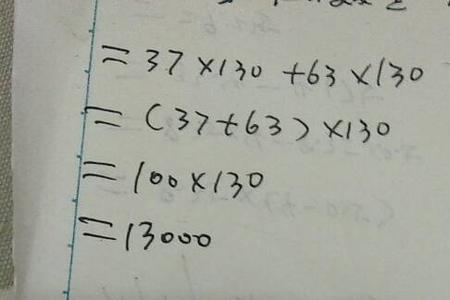 =37×130+63×130
=(37+63)×130
=100×130
=13000